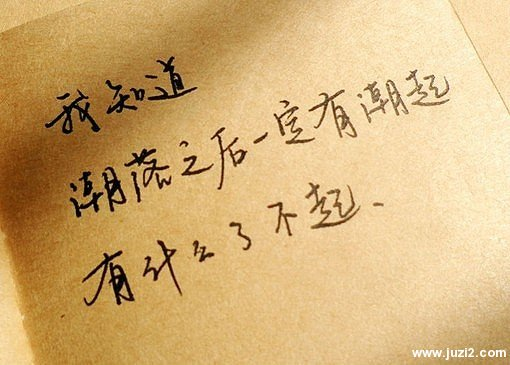 我知道
潮落之后一定有潮起
有什么了不起、
www.juzi2.com